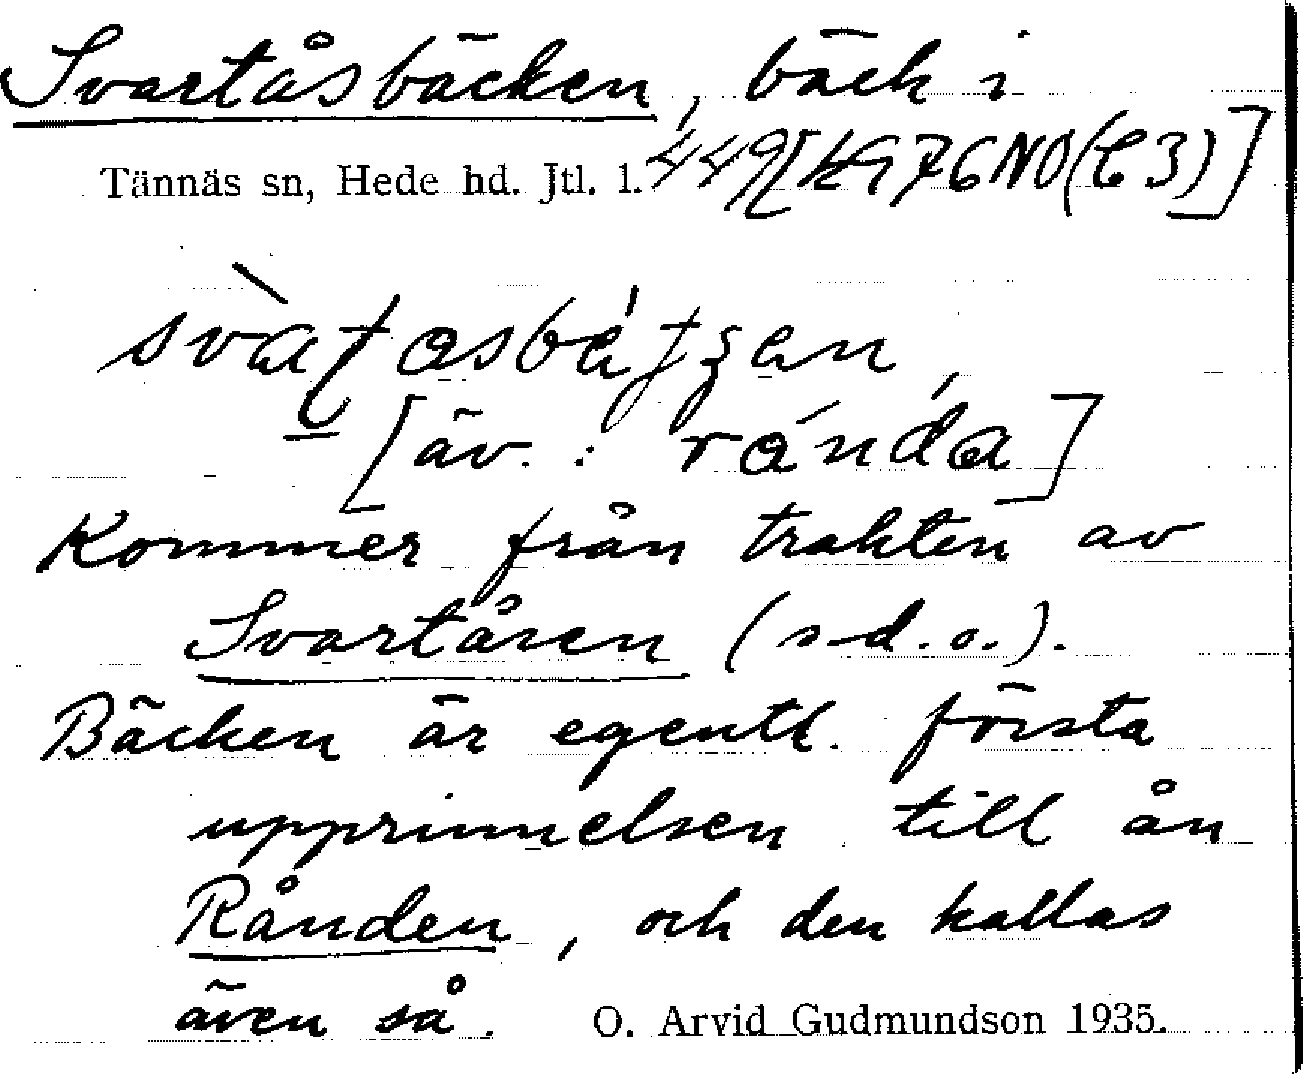 Svartåsbäcken, bäck i
Tännäs sn, Hede hd. Jtl. l. 449[kg76NO(C3)]
[äv.: rånda]
Kommer från trakten av
Svartåsen (s.d.o.).
Bäcken är egentl. första
upprinnelsen till ån
Rånden, och den kallas
även så. O. Arvid Gudmundson 1935.